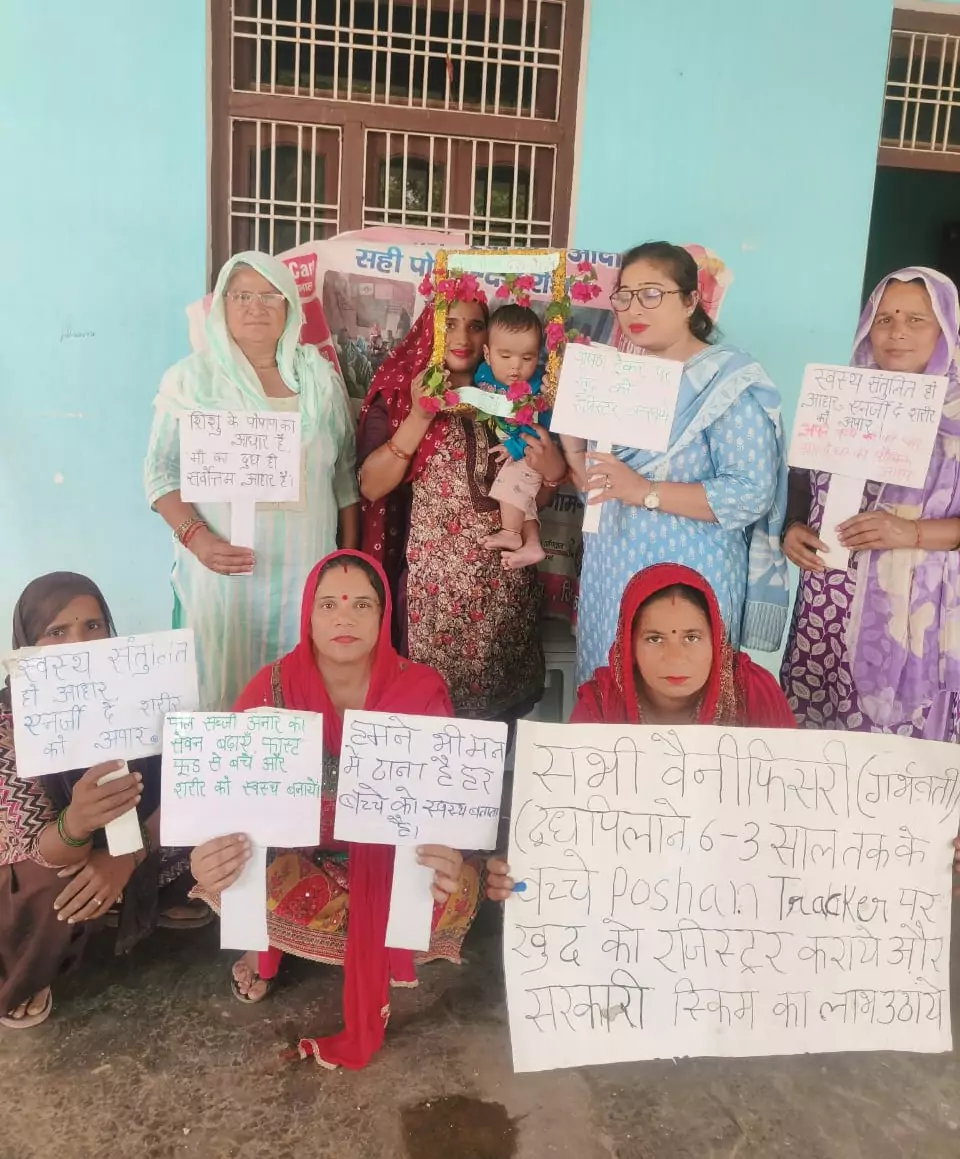 सही पो
शिशु के पोषण का
आधार है,
माँ का दूध ही
सर्वोत्तम आहार है।
पोषण ट्रेकर पर
खुद को
रजिस्टर करवाये
स्वस्थ संतुलित हो
आहार, एनर्जी दे शरीर
को अपार
स्वस्थ संतुलित
हो आहार,
एनर्जी दे शरीर
को अपार।
फल सब्जी अनार का
सेवन बढ़ाएँ, फास्ट
फूड से बचे और
शरीर को स्वस्थ बनाये।
हमने भी मन
में ठाना है हर
बच्चे को स्वस्थ बनाना
है।
सभी वैनीफिसरी (गर्भवती)
(दूधपिलाने, 6-3 साल तक के
बच्चे Poshan Tracker पर
खुद को रजिस्ट्रर कराये और
सरकारी स्किम का लाभ उठाये